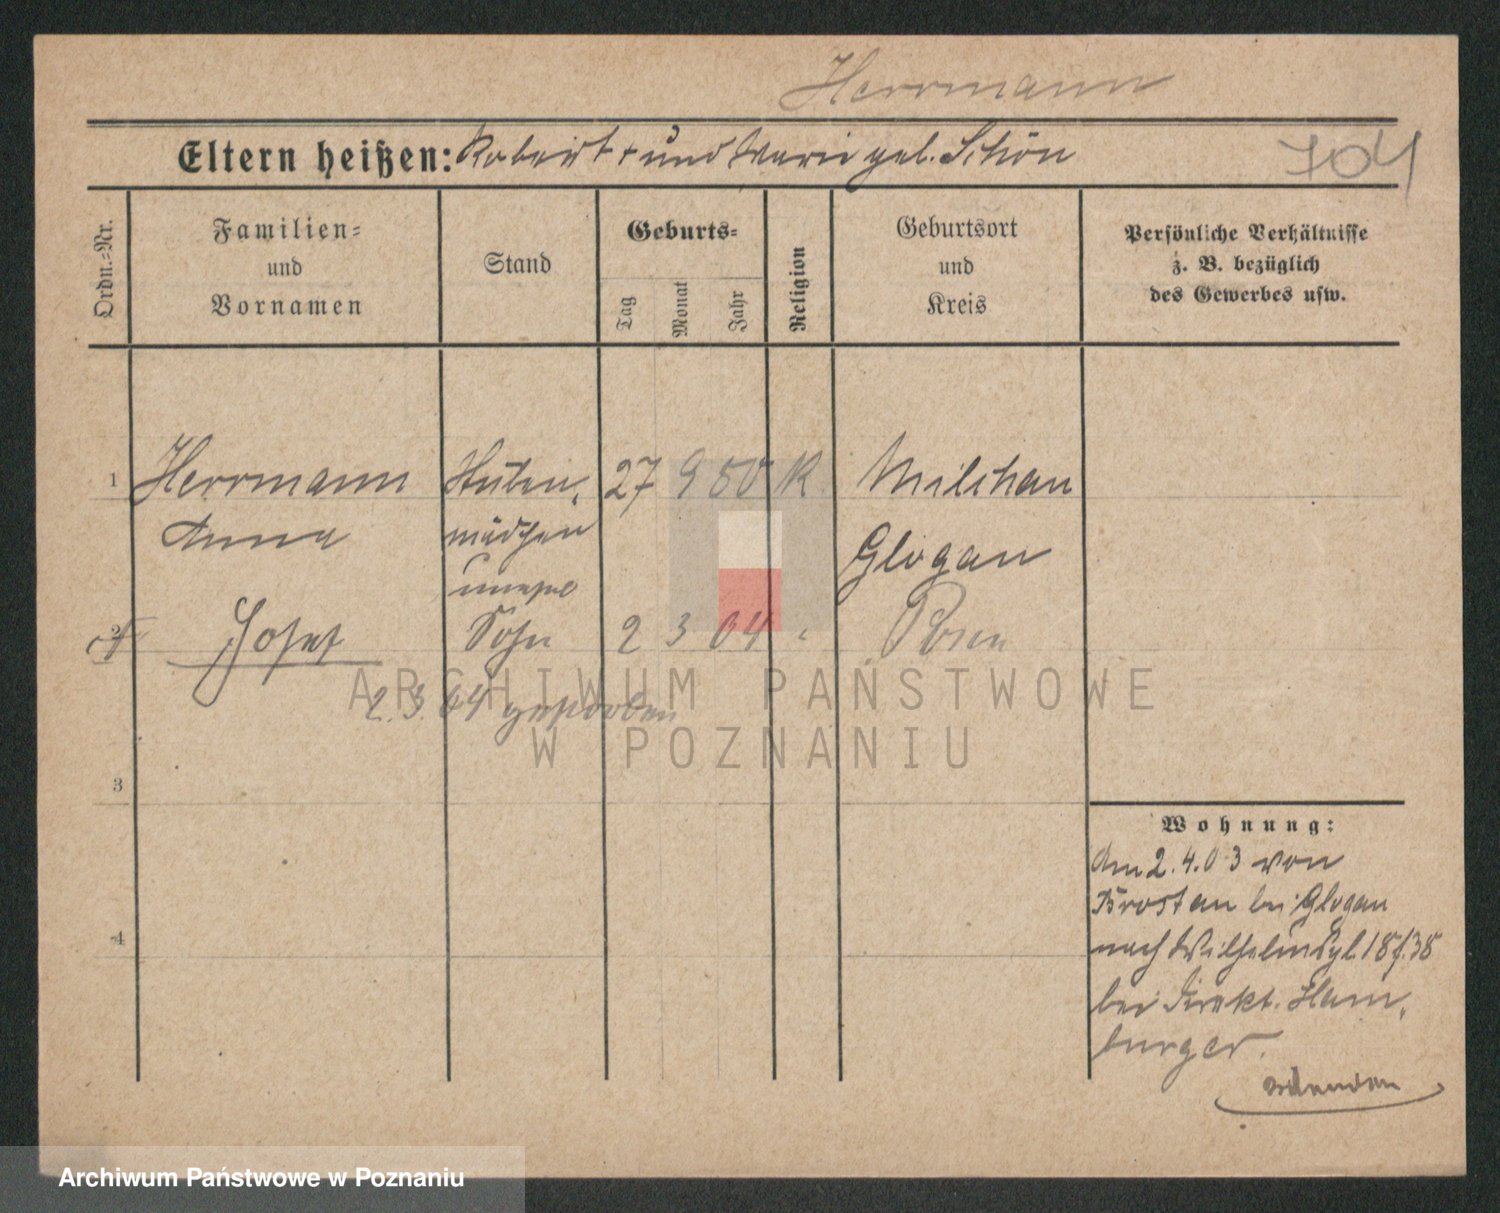 Herrmann
Eltern heißen: Robert + und Marie geb. Schön
704
Ordn.-Nr.
Familien-
und
Vornamen
Stand
Geburts-
Tag
Monat
Jahr
Religion
Geburtsort
und
Kreis
Persönliche Verhältnisse
z. B. bezüglich
des Gewerbes usw.
1 Herrmann Stuben- 27 9 80 K Milchau
Anna mädchen Glogau
unehel
2 Josef Sohn 2 3 04 " Posen
2. 3. 04 gestorben
3
4
Wohnung:
Am 2.4.03 von
Brostau bei Glogau
nach Wilhelmspl. 18 f. 38
bei Direkt. Ham-
burger.
ARCHIWUM PAŃSTWOWE
W POZNANIU
Archiwum Państwowe w Poznaniu